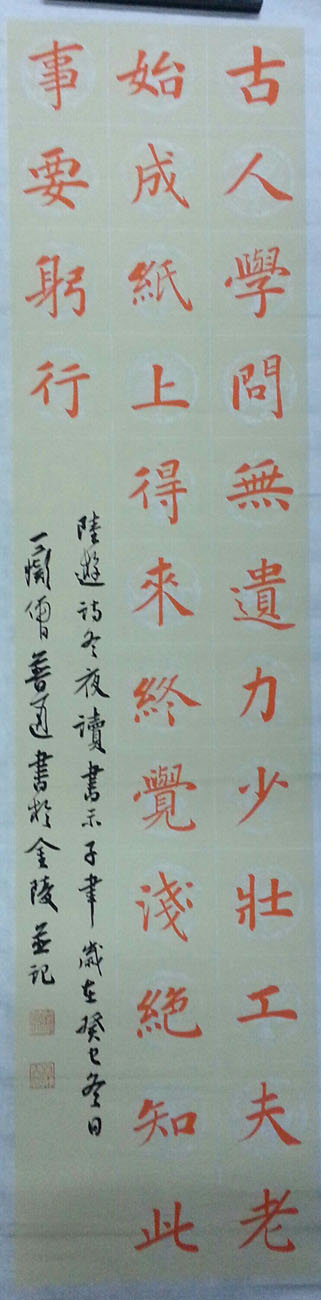 古人學問無遺力少壯工夫老
始成紙上得來終覺淺絕知此
事要躬行
陸遊詩冬夜讀書示子聿歲在癸巳冬日
普通書於金陵並記